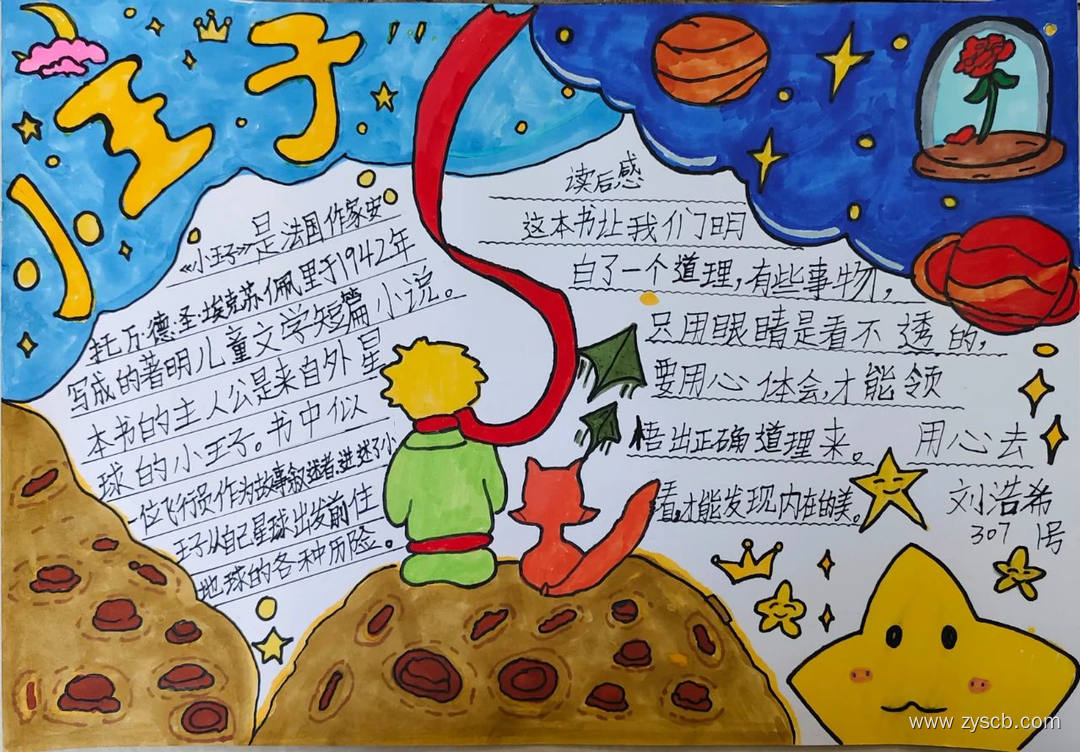 小王子
《小王子》是法国作家安
托万·德·圣·埃克苏佩里于1942年
写成的著明儿童文学短篇小说。
本书的主人公是来自外星
球的小王子。书中似
一位飞行员作为故事叙述者,进述了小
王子从自己星球出发前往
地球的各种历险。
读后感
这本书让我们明
白了一个道理,有些事物,
只用眼睛是看不透的,
要用心体会,才能领
悟出正确道理来。用心去
看,才能发现内在的美。
刘浩希
307 1号
www.zyscb.com